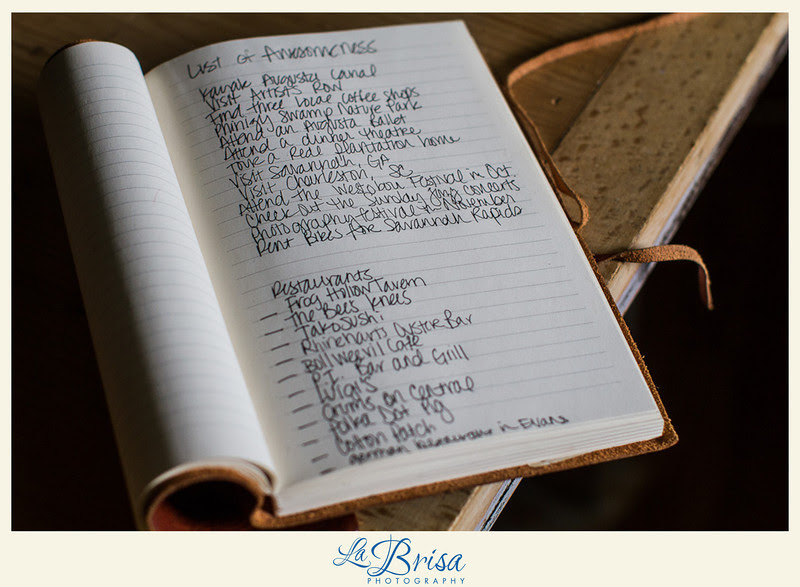 List of Awesomeness
Kayak Augusta Canal
Visit Artists Row
Find three local coffee shops
Phinizy Swamp Nature Park
Attend an Augusta Ballet
Attend a dinner theatre
Tour a Real plantation home
Visit Savannah, GA
Visit Charleston, SC
Attend the Westobou Festival in Oct.
Check out the Sunday jing concerts
Photography festival in November
Rent Bikes for Savannah Rapids
Restaurants
- Frog Hollow Tavern
- The Bees Knees
- TakoSushi
- Rhineharts Oyster Bar
- Boll Weevil Cafe
- P.I. Bar and Grill
- Luigis
- Crums on Central
- Polka Dot Pig
- Cotton Patch
- German Restaurant in Evans
La Brisa
PHOTOGRAPHY